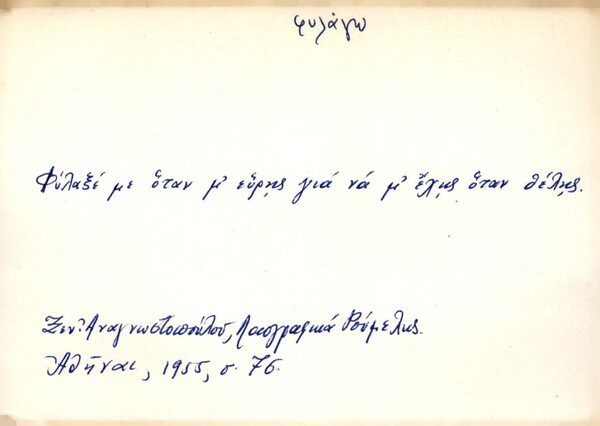 φυλάγω
Φύλαξέ με ὅταν μ' εὕρῃς γιά νά μ' ἔχῃς ὅταν θέλῃς.
Ξεν. Ἀναγνωστοπούλου, Λαογραφικά Ρούμελης.
Ἀθῆναι, 1955, σ. 76.